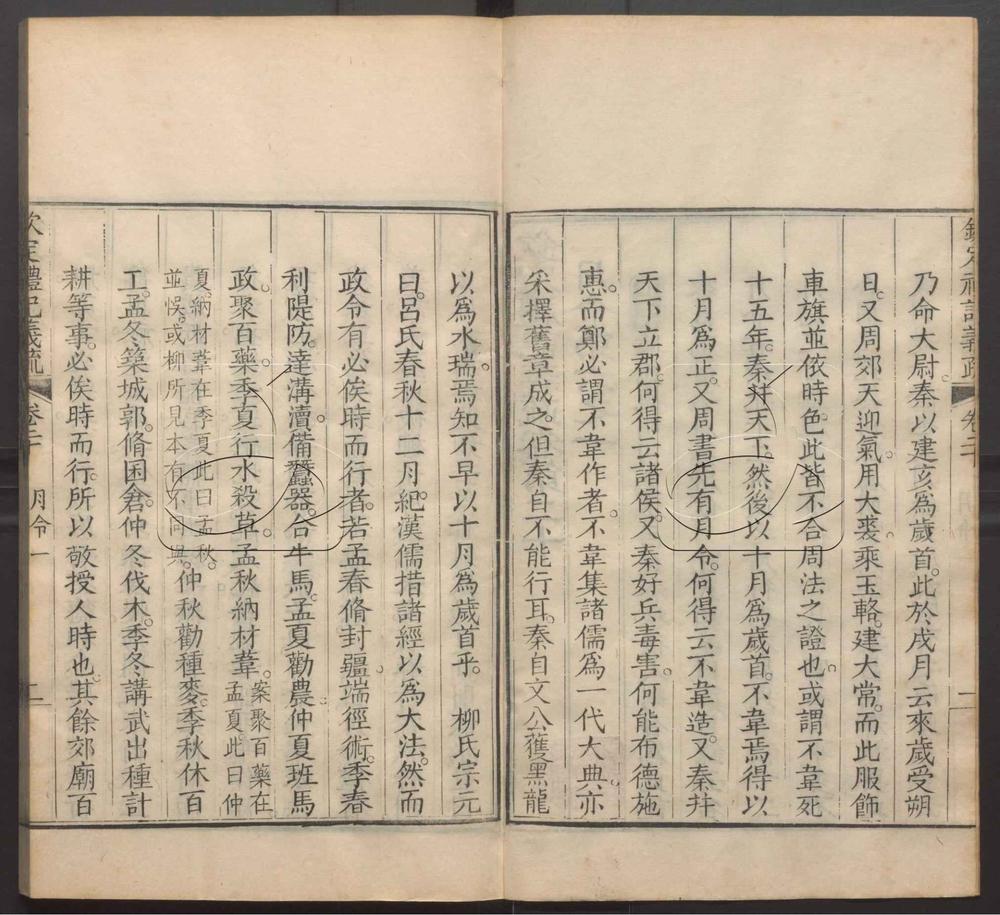 乃命大尉。秦以建亥爲歲首。此於戌月云來歲受朔
日。又周郊天迎氣。用大裘。乘玉輅。建大常。而此服飾
車旗並依時色。此皆不合周法之證也。或謂不韋死
十五年。秦幷天下。然後以十月爲歲首。不韋焉得以
十月爲正。又周書先有月令。何得云不韋造。又秦幷
天下立郡。何得云諸侯。又秦好兵毒害。何能布德施
惠。而鄭必謂不韋作者。不韋集諸儒爲一代大典。亦
采擇舊章成之。但秦自不能行耳。秦自文公獲黑龍
以爲水瑞。焉知不早以十月爲歲首乎。 柳氏宗元
曰。呂氏春秋十二月紀。漢儒措諸經以爲大法。然而
政令有必俟時而行者。若孟春脩封疆。端徑術。季春
利隄防。達溝瀆。備蠶器。合牛馬。孟夏勸農。仲夏班馬
政。聚百藥。季夏行水殺草。孟秋納材葦。案聚百藥在孟夏。此曰仲
夏。納材葦在季夏。此曰孟秋。並悞。或柳所見本有不同與。仲秋勸種麥。季秋休百
工。孟冬築城郭。脩囷倉。仲冬伐木。季冬講武出種計
耕等事。必俟時而行。所以敬授人時也。其餘郊廟百
欽定禮記義疏 卷二十 月令一 二